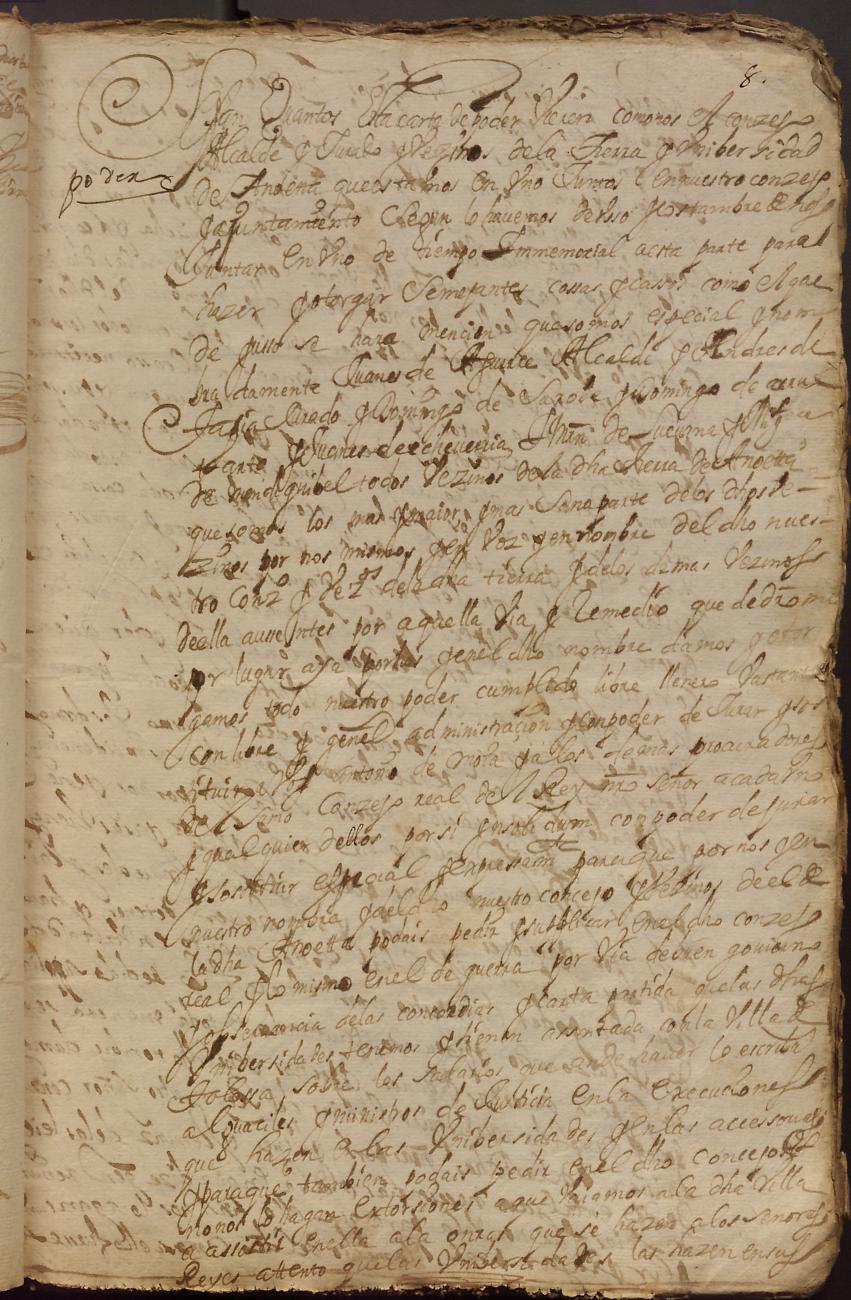 8.
Sepan Quantos Esta carta de poder Vieren como nos el conzejo
Alcalde y Jurado y Vezinos de la Tierra y Vnibersidad
poder
de Anoeta que estamos en Vno Juntos en nuestro conzejo
y ayuntamiento segun lo havemos de vso y costumbre de nos
Juntar En Vno de tiempo Immemorial a esta parte para
hazer y otorgar Semejantes cossas y cassos como el que
de yusso se hara mencion que somos especial y nom
bradamente Juanes de Aguirre Alcalde y Andres de
Jurado y Domingo de Sarobe y Domingo de
y Juanes de echeverria, de y
de mendiguibel todos Vezinos de la dha Tierra de Anoeta
que somos los mas y maior y mas Sana parte de los dhos Ve-
zinos por nos mismos y en Voz y en nombre del dho nues-
tro Conzo y Vezos de la dha tierra y de los demas Vezinos
de ella aussentes por aquella Via y Remedio que de dro m
por lugar aya por nos y en el dho nombre damos y otor
gamos todo nuestro poder cumplido libre llenero Vastante
con libre y genel administracion y con poder de Jurar y sos
tituir a Antonio de Mora y a los demas procuradores
del Conzejo real de el Rey nro señor a cada Vno
y qualquier dellos por si ynsolidum con poder de Jurar
y sostituir especial y expressamte para que por nos y en
nuestro nombre y del dho nuestro concejo y Vezinos de el de
la dha Anoeta podais pedir y suplicar en el dho conzejo
real y lo mismo en el de guerra por Via de buen govierno
y obserbancia de las concordias y carta partida que las dhas
Vnibersidades tenemos y tienen assentada con la Villa de
Tolossa, sobre los salarios que an de haver lo escriba
alguaciles y ministros de Justicia en la Execuciones
que hazen a las Vnibersidades y en las accessorias
y para que tambien podais pedir en el dho concejo
no nos lo hagan extorsiones a que Vaiamos a la dha Villa
a assistir en ella a la onrras que se hazen a los señores
Reyes attento que las Vnibersidades las hazen en sus